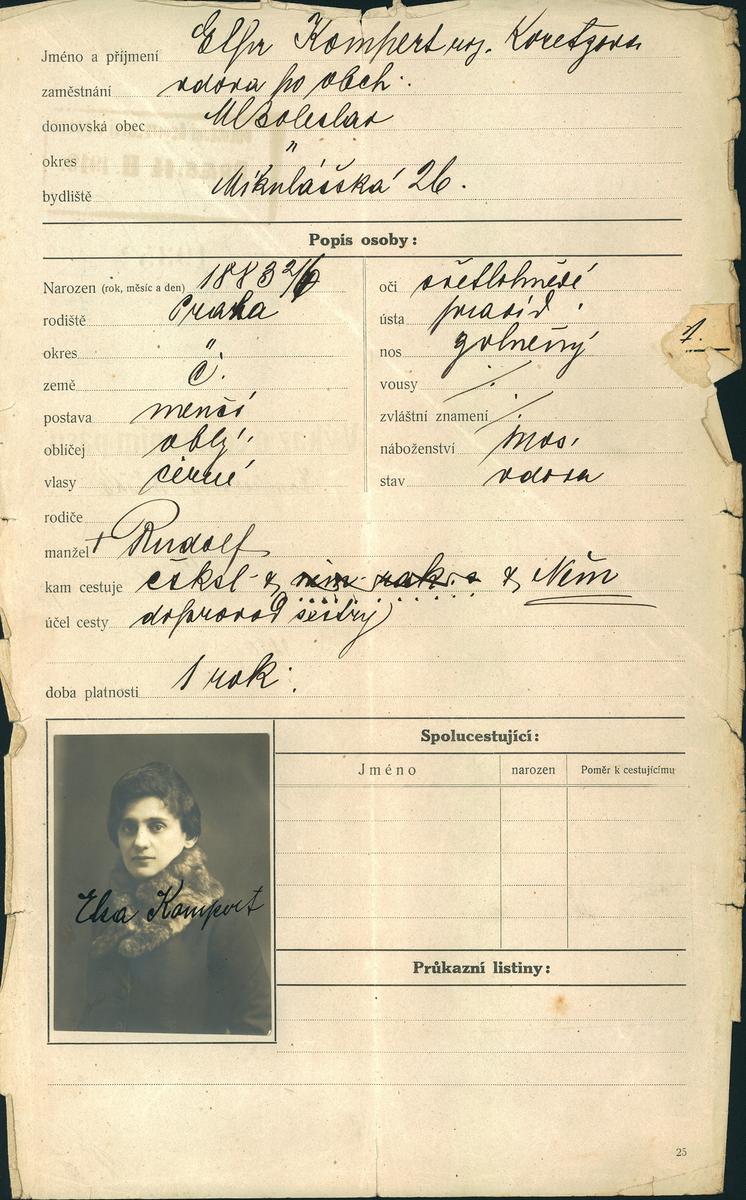 Jméno a příjmení Elsa Kompert roz. Koretzova
zaměstnání vdova po obch.
domovská obec Ml Boleslav
okres "
bydliště Mikulášská 26.
Popis osoby:
Narozen (rok, měsíc a den) 1883 2/6
rodiště Praha
okres "
země Č.
postava menší
obličej oblý
vlasy černé
oči světlohnědé
ústa pravid.
nos
vousy /.
zvláštní znamení /.
náboženství mos.
stav vdova
1.
rodiče
manžel + Rudolf
kam cestuje čsksl & & Něm
účel cesty doprovod sestry
doba platnosti 1 rok.
Spolucestující:
Jméno narozen Poměr k cestujícímu
Elsa Kompert
Průkazní listiny:
25